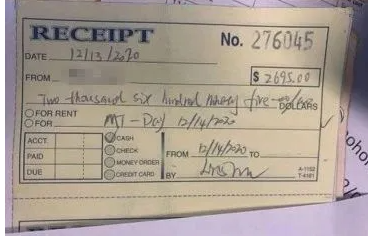 RECEIPT No. 276045
DATE 12/13/2020
FROM $ 2695.00
Two thousand six hundred ninety five 00/100 DOLLARS
FOR RENT
FOR MI-Day 12/14/2020
ACCT. CASH
PAID CHECK FROM 12/14/2020 TO
MONEY ORDER
DUE CREDIT CARD BY
A-1152
T-4161